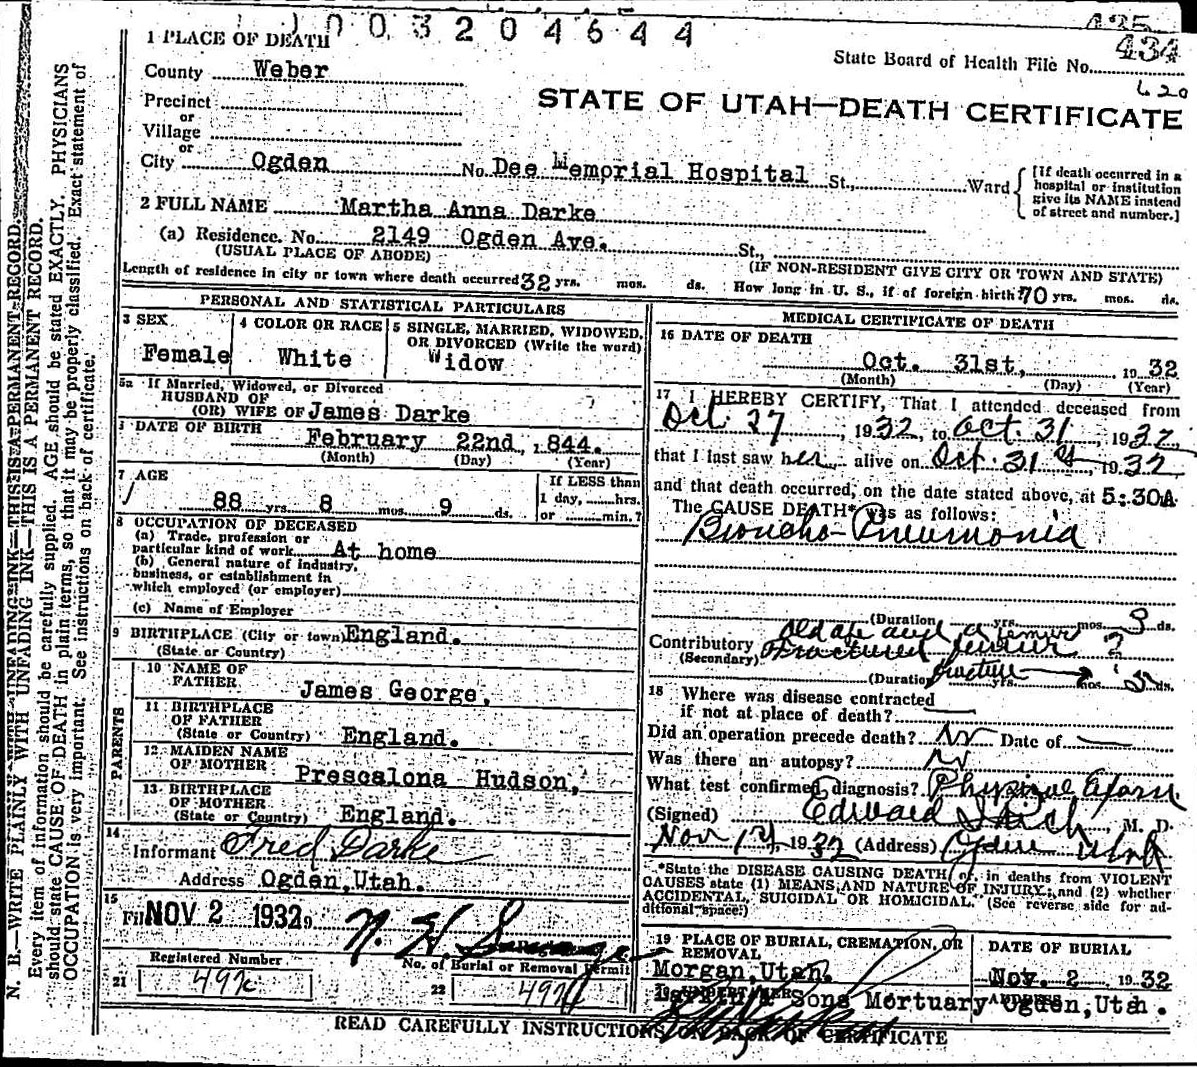 1003204644
435
434
State Board of Health File No.
620
STATE OF UTAH—DEATH CERTIFICATE
1 PLACE OF DEATH
County Weber
Precinct
or
Village
or
City Ogden No. Dee Memorial Hospital St., Ward
[If death occurred in a hospital or institution give its NAME instead of street and number.]
2 FULL NAME Martha Anna Darke
(a) Residence. No. 2149 Ogden Ave. St.,
(USUAL PLACE OF ABODE) (IF NON-RESIDENT GIVE CITY OR TOWN AND STATE)
Length of residence in city or town where death occurred 32 yrs. mos. ds. How long in U. S., if of foreign birth? 70 yrs. mos. ds.
PERSONAL AND STATISTICAL PARTICULARS
3 SEX
Female
4 COLOR OR RACE
White
5 SINGLE, MARRIED, WIDOWED, OR DIVORCED (Write the word)
Widow
5a If Married, Widowed, or Divorced
HUSBAND OF
(OR) WIFE OF James Darke
DATE OF BIRTH
February 22nd, 1844.
(Month) (Day) (Year)
7 AGE
88 yrs. 8 mos. 9 ds.
If LESS than
1 day, hrs.
or min.?
8 OCCUPATION OF DECEASED
(a) Trade, profession or
particular kind of work At home
(b) General nature of industry,
business, or establishment in
which employed (or employer)
(c) Name of Employer
9 BIRTHPLACE (City or town) England.
(State or Country)
PARENTS
10 NAME OF
FATHER James George,
11 BIRTHPLACE
OF FATHER
(State or Country) England.
12 MAIDEN NAME
OF MOTHER Prescalona Hudson,
13 BIRTHPLACE
OF MOTHER
(State or Country) England.
14
Informant Fred Darke
Address Ogden, Utah.
15
Filed NOV 2 1932
Registered Number
21 492
No. of Burial or Removal Permit
22 492
MEDICAL CERTIFICATE OF DEATH
16 DATE OF DEATH
Oct. 31st, 1932
(Month) (Day) (Year)
17 I HEREBY CERTIFY, That I attended deceased from
Oct 27, 1932, to Oct. 31, 1932,
that I last saw her alive on Oct. 31st 1932
and that death occurred, on the date stated above, at 5:30A
The CAUSE DEATH* was as follows:
Broncho-Pneumonia
(Duration yrs. mos. 3 ds.
Contributory old age and a femur
(Secondary) Fractured femur ?
(Duration fracture yrs. mos. 5 ds.
18 Where was disease contracted
if not at place of death?
Did an operation precede death? No Date of
Was there an autopsy? No
What test confirmed diagnosis? Physical Exam
(Signed) Edward I Rich, M. D.
Nov 1st, 1932 (Address) Ogden Utah
*State the DISEASE CAUSING DEATH, or, in deaths from VIOLENT
CAUSES state (1) MEANS AND NATURE OF INJURY; and (2) whether
ACCIDENTAL, SUICIDAL OR HOMICIDAL. (See reverse side for ad-
ditional space.)
19 PLACE OF BURIAL, CREMATION, OR
REMOVAL
Morgan, Utah.
DATE OF BURIAL
Nov. 2 1932
Sons Mortuary
ADDRESS
Ogden, Utah.
READ CAREFULLY INSTRUCTIONS ON BACK OF CERTIFICATE
N. B.—WRITE PLAINLY WITH UNFADING INK—THIS IS A PERMANENT RECORD.
Every item of information should be carefully supplied. AGE should be stated EXACTLY. PHYSICIANS
should state CAUSE OF DEATH in plain terms, so that it may be properly classified. Exact statement of
OCCUPATION is very important. See instructions on back of certificate.